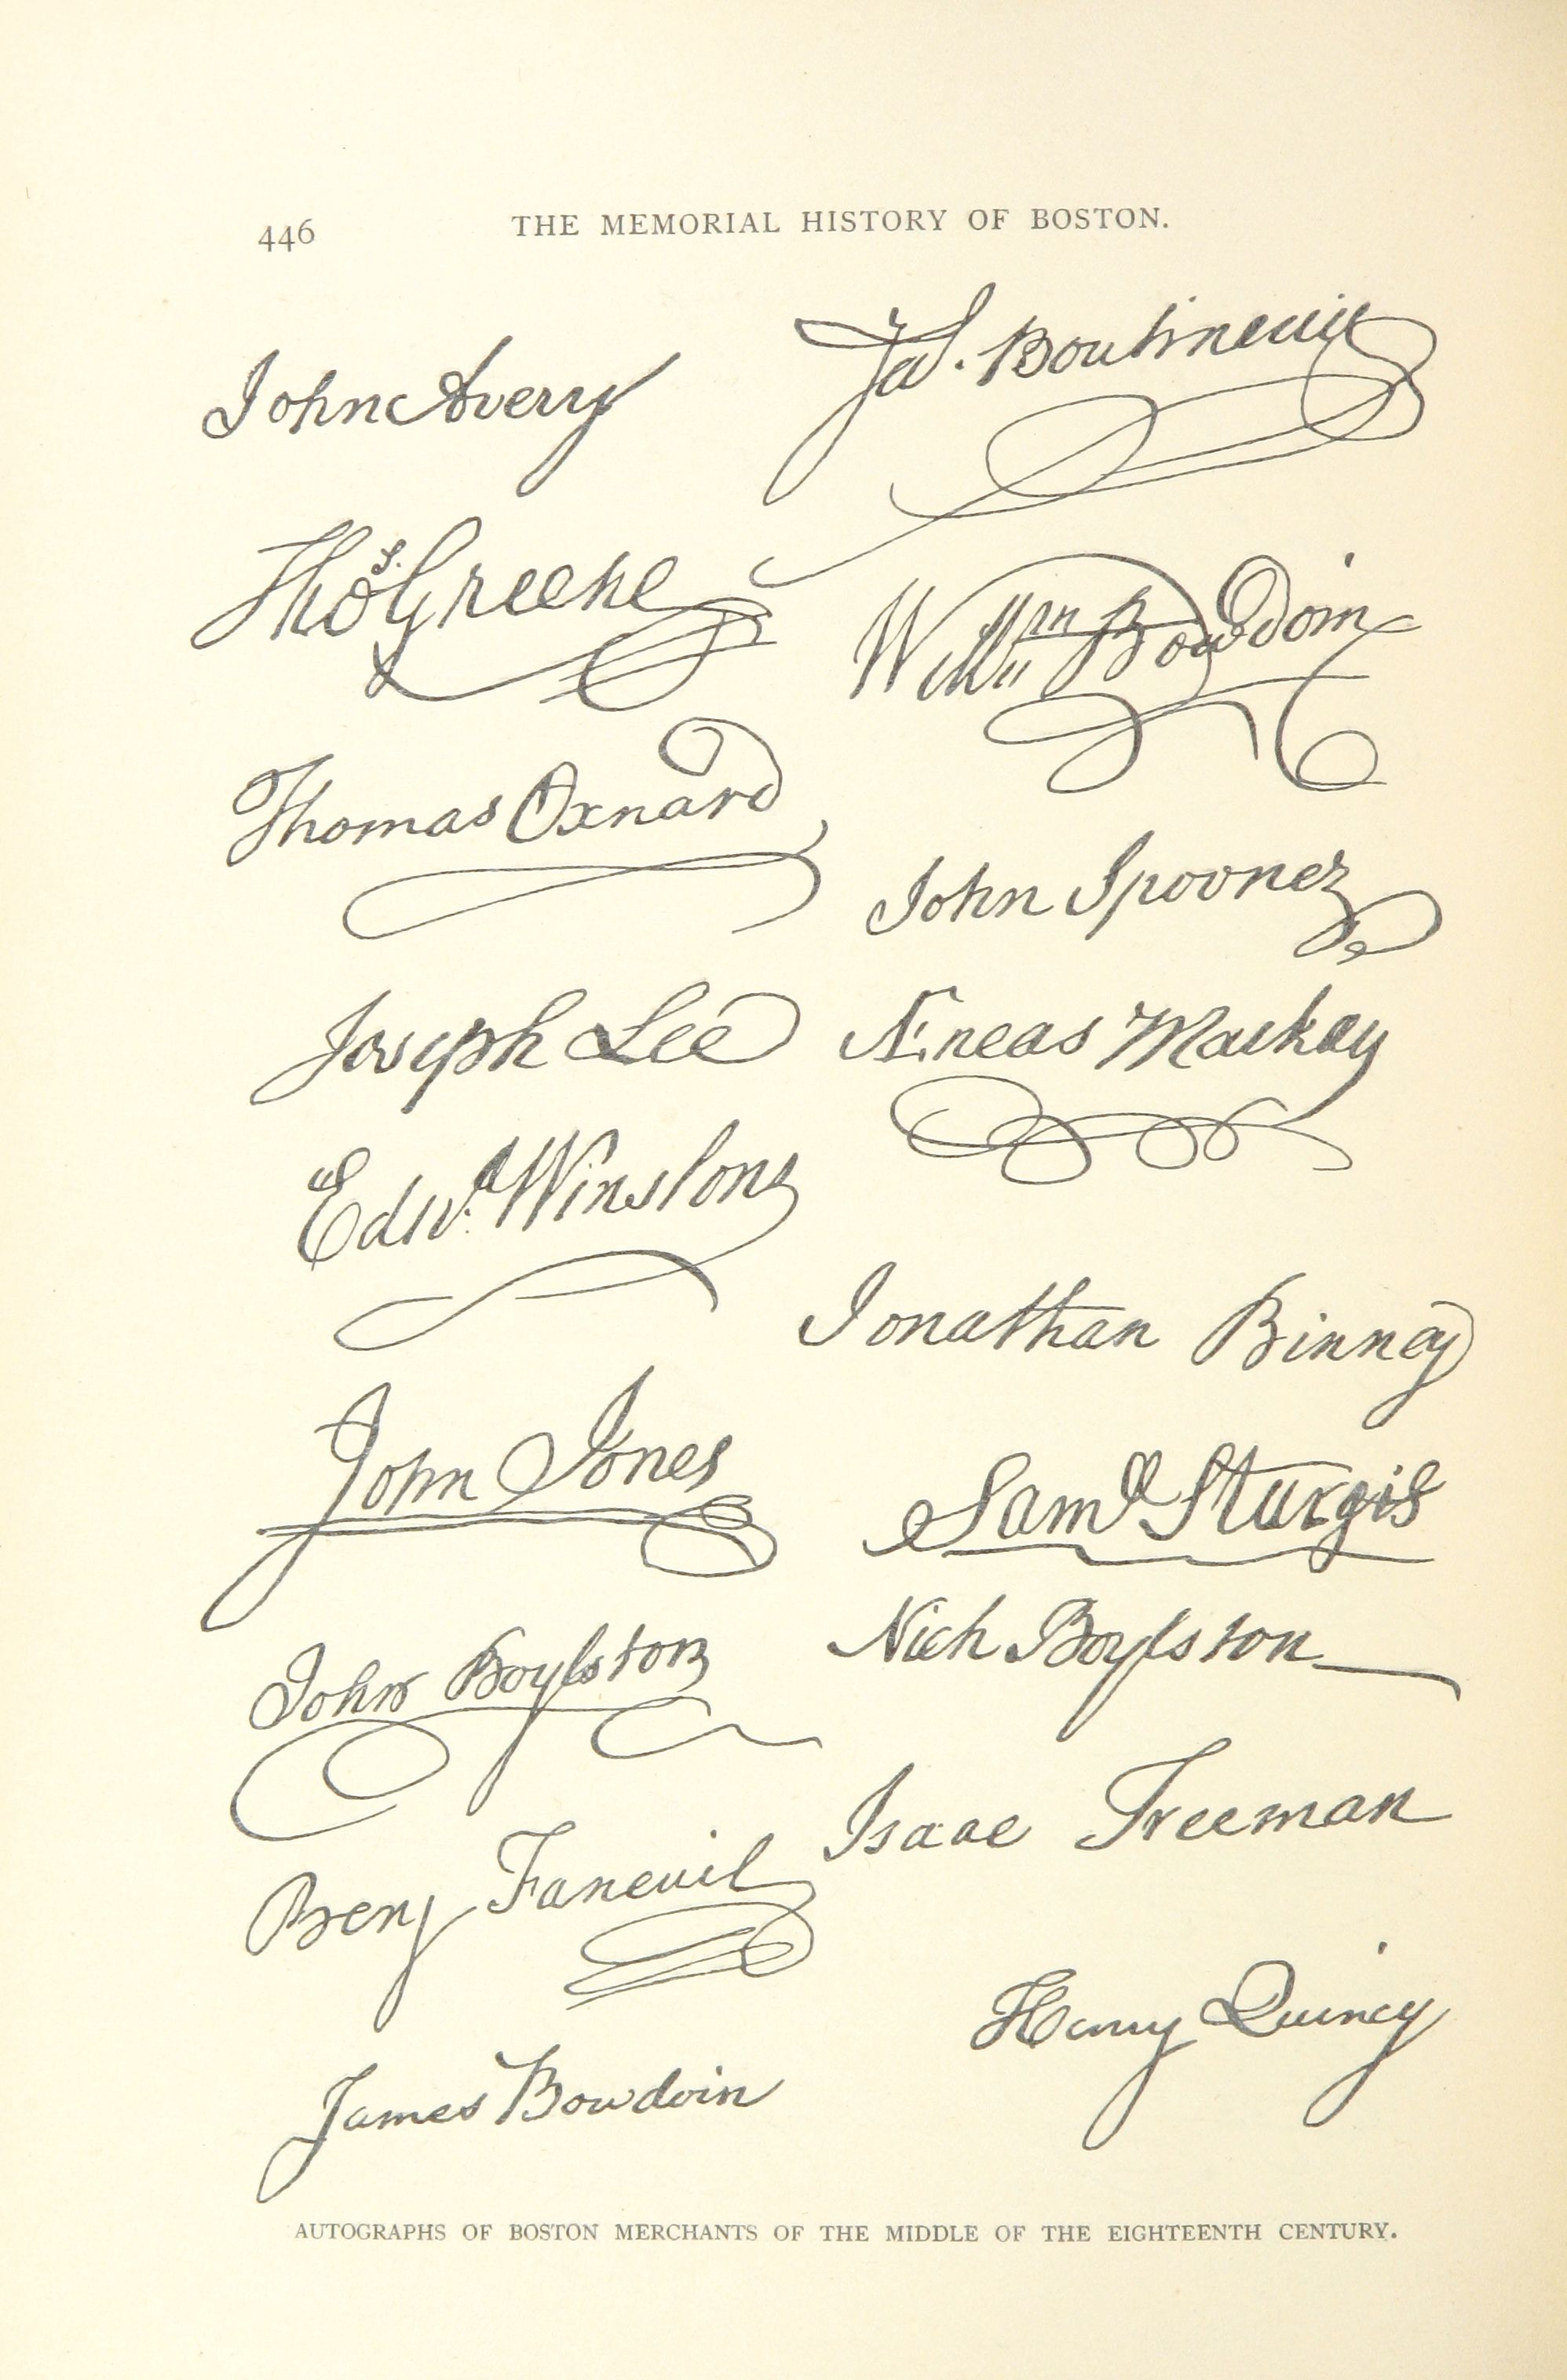 446 THE MEMORIAL HISTORY OF BOSTON.
John Avery
Jas. Boutineau
Thos. Greene
Willm Bowdoin
Thomas Oxnard
John Spooner
Joseph Lee
Æneas Mackay
Edwd. Winslow
Jonathan Binney
John Jones
Saml Sturgis
John Boylston
Nich Boylston
Isaac Freeman
Benj Faneuil
Henry Quincy
James Bowdoin
AUTOGRAPHS OF BOSTON MERCHANTS OF THE MIDDLE OF THE EIGHTEENTH CENTURY.